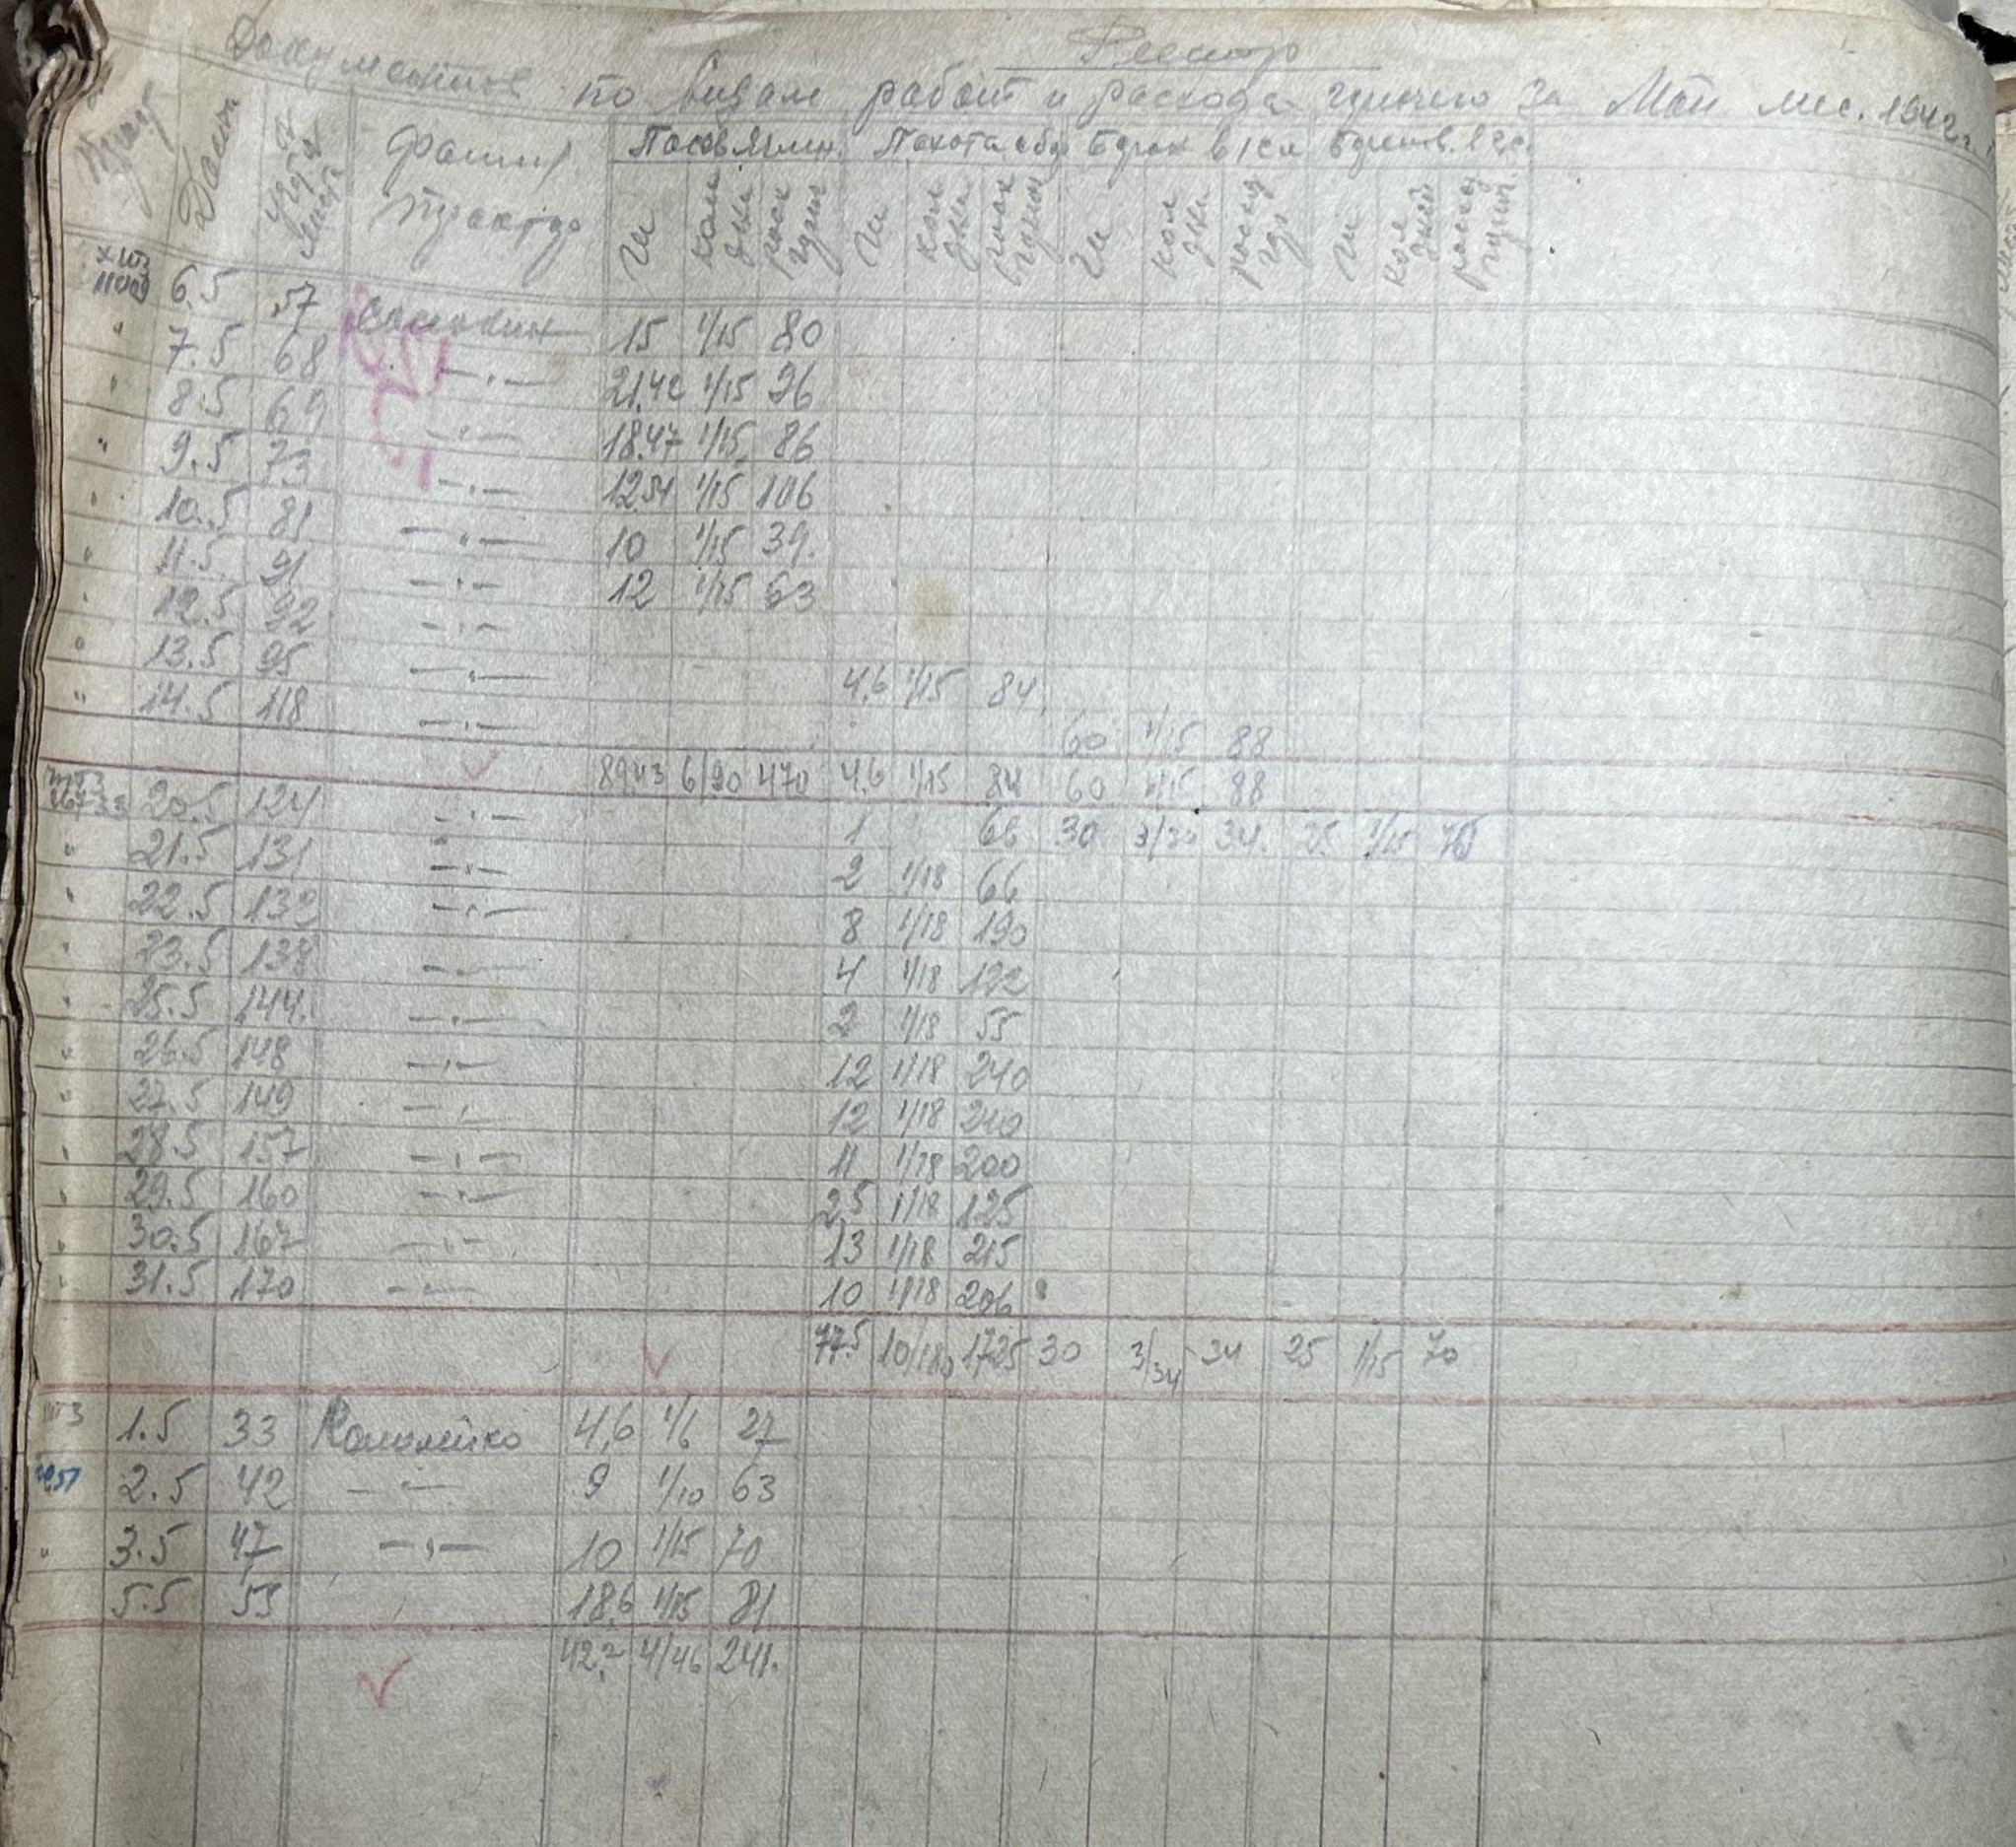 Реестр
Документов по видам работ и расхода горючего за Май мес. 1942 г.
Дата фамил. Посев ячмен. Пахота Букк в 1 сл Букк в 2 с.
тракт га кол дни расх га кол дни га кол дни га кол дней расход
ХТЗ 6.5 57 15 1/15 80
" 7.5 68 —"— 21.42 1/15 96
" 8.5 69 —"— 18.47 1/15 86
" 9.5 73 —"— 12.54 1/15 106
" 10.5 81 —"— 10 1/15 39.
" 11.5 91 —"— 12 1/15 63
" 12.5 92 —"—
" 13.5 95 —"— 4.6 1/15 84
" 14.5 118 —"— 60 1/15 88
89.43 6/90 470 4.6 1/15 84 60 1/15 88
20.5 124 —"— 1 66 30 34. 25 1/15 70
" 21.5 131 —"— 2 1/18 66
" 22.5 132 —"— 8 1/18 190
" 23.5 138 —"— 4 1/18 122
" 25.5 144. —"— 2 1/18 55
" 26.5 148 —"— 12 1/18 240
" 27.5 149 —"— 12 1/18 240
" 28.5 157 —"— 11 1/18 200
" 29.5 160 —"— 2,5 1/18 125
" 30.5 167 —"— 13 1/18 215
" 31.5 170 —"— 10 1/18 206
77.5 10/180 1725 30 3/34 34 25 1/15 70
1.5 33 Коломейко 4,6 1/6 27
2.5 42 —"— 9 1/10 63
" 3.5 47 —"— 10 1/15 70
5.5 53 " 18.6 1/15 81
42.2 4/46 241.